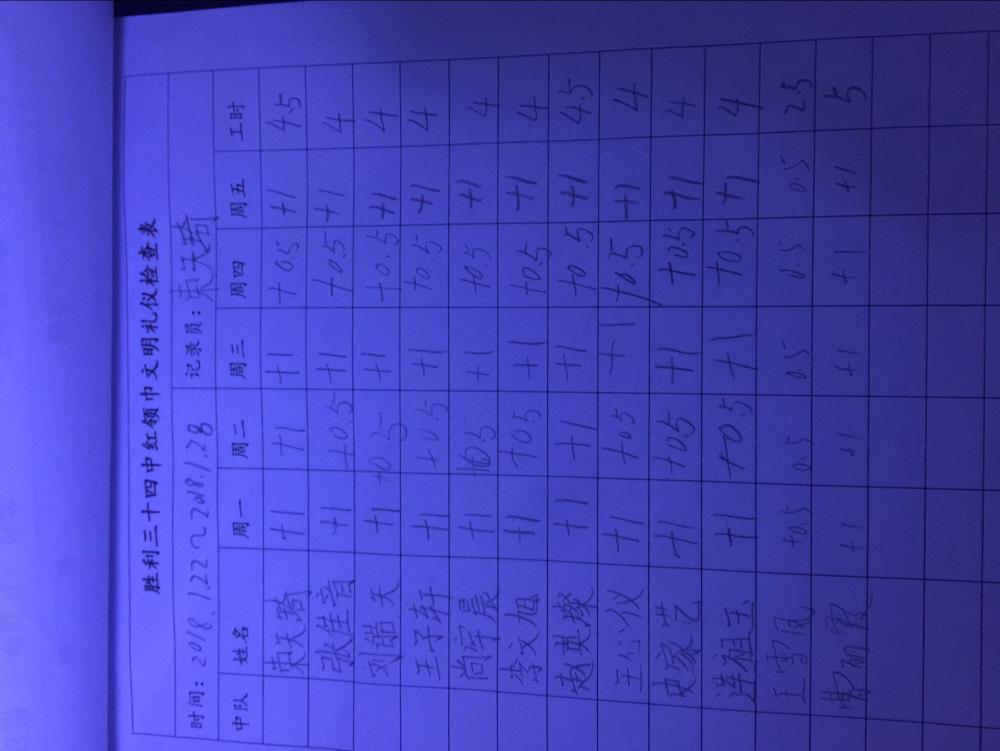 胜利三十四中红领巾文明礼仪检查表
时间: 2018.1.22~2018.1.28 记录员: 荣天琦
中队 姓名 周一 周二 周三 周四 周五 工时
荣天琦 +1 +1 +1 +0.5 +1 4.5
张佳音 +1 +0.5 +1 +0.5 +1 4
刘皓天 +1 +0.5 +1 +0.5 +1 4
王子轩 +1 +0.5 +1 +0.5 +1 4
尚宇晨 +1 +0.5 +1 +0.5 +1 4
李文旭 +1 +0.5 +1 +0.5 +1 4
赵英燦 +1 +1 +1 +0.5 +1 4.5
王心仪 +1 +0.5 +1 +0.5 +1 4
史家艺 +1 +0.5 +1 +0.5 +1 4
祖玉 +1 +0.5 +1 +0.5 +1 4
王雪凤 +0.5 0.5 0.5 0.5 0.5 2.5
曹丽霞 +1 +1 +1 +1 +1 5